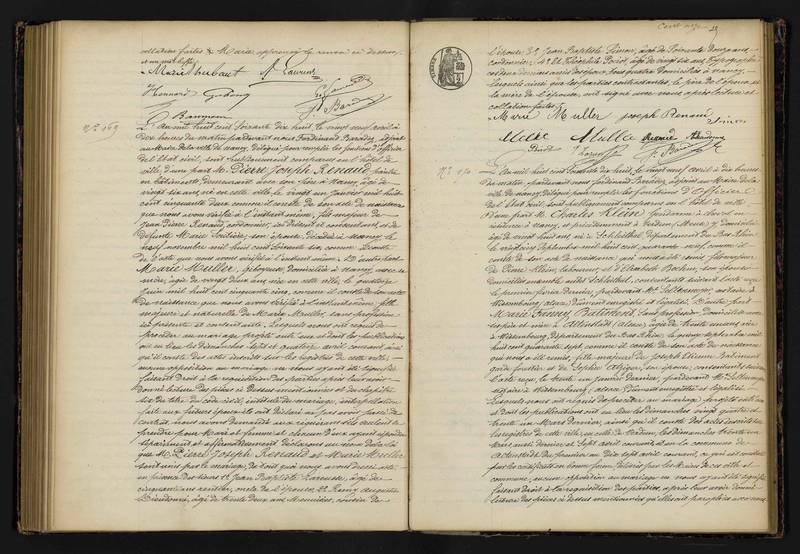 et en mil huit
Marie Thubaut
N° 169
L'an mil huit cent soixante dix huit, le vingt neuf avril à
dix heures du matin, pardevant nous Ferdinand Barades, adjoint
au Maire de la ville de Nancy, délégué pour remplir les fonctions d'officier
de l'état civil, sont publiquement comparus en l'hôtel de
ville, d'une part M. Pierre Joseph Renaud, peintre
en bâtiments, demeurant avec son père à Nancy, âgé de
vingt six ans, né en cette ville, le vingt un janvier mil huit
cent cinquante deux comme il conste de son acte de naissance
que nous avons vérifié à l'instant même, fils majeur de
Jean Pierre Renaud, cordonnier, ici présent et consentant et de
défunte Marie son épouse, décédée à Nancy le
neuf novembre mil huit cent soixante six, comme il conste
de l'acte que nous avons vérifié à l'instant même; & d'autre part
Marie Muller, giboyeuse, domiciliée à Nancy avec sa
mère, âgée de vingt deux ans, née en cette ville, le quatorze
juin mil huit cent cinquante cinq, comme il conste de son acte
de naissance que nous avons vérifié à l'instant même, fille
majeure et naturelle de Marie Muller, sans profession
ici présente et consentante. Lesquels nous ont requis de
procéder au mariage projeté entre eux et dont les publications
ont eu lieu les dimanches sept et quatorze avril courant, ainsi
qu'il conste des actes inscrits sur les registres de cette ville;
aucune opposition au mariage ne nous ayant été signifiée,
faisant droit à la réquisition des parties après leur avoir
donné lecture des pièces ci dessus mentionnées et du chapitre
six du titre du code civil, intitulé du mariage, interpellation
faite aux futurs époux ils ont déclaré ne pas avoir passé de
contrat, nous avons demandé aux requérants s'ils veulent se
prendre pour mari et femme et chacun d'eux ayant répondu
séparément et affirmativement déclarons au nom de la loi
que M. Pierre Joseph Renaud et Marie Muller
sont unis par le mariage, de tout quoi nous avons dressé acte
en présence des sieurs 1° Jean Baptiste âgé de
cinquante ans rentier, oncle de l'épouse, 2° Remy Augustin
Dieudonné, âgé de trente deux ans, Menuisier, cousin de
29
l'épouse, 3° Jean Baptiste Simon, âgé de soixante douze ans,
cordonnier, 4° Théophile âgé de vingt six ans, typographe
ces deux derniers amis des époux, tous quatre domiciliés à Nancy
lesquels ainsi que les parties contractantes, le père de l'époux et
la mère de l'épouse, ont signé avec nous après lecture et
collation faites
Marie Muller Joseph Renaud
Simon
Muller Renaud Dieudonné
N° 170
L'an mil huit cent soixante dix huit, le vingt neuf avril à dix heures
du matin, pardevant nous Ferdinand Barades, adjoint au Maire de la
ville de Nancy, délégué pour remplir les fonctions d'Officier
de l'état civil, sont publiquement comparus en l'hôtel de ville
d'une part M. Charles Klein, gendarme à cheval en
résidence à Nancy, et précédemment à Verdun, Meuse, y domicilié
âgé de vingt huit ans, né à Schleithal, département du Bas Rhin
le vingt cinq septembre mil huit cent quarante neuf, comme il
conste de son acte de naissance qui nous a été remis, fils majeur
de Pierre Klein, laboureur, et d'Elisabeth son épouse
domiciliés ensemble audit Schleithal, consentants suivant l'acte reçu
le premier février dernier, pardevant Me notaire à
Wissembourg, alsace, dûment enregistré et légalisé. & d'autre part
Marie Fanny Baltimont, sans profession, domiciliée avec
ses père et mère à Altenstadt, (alsace), âgée de trente un ans, née
à Wissembourg, département du Bas Rhin, le
huit cent quarante sept, comme il conste de son acte de naissance
qui nous a été remis, fille majeure de Joseph Etienne Baltimont
garde forestier et de Sophie son épouse, consentants suivant
l'acte reçu le trente un janvier dernier, pardevant Me
notaire à Wissembourg, (alsace) dûment enregistré et légalisé.
Lesquels nous ont requis de procéder au mariage projeté entre eux
et dont les publications ont eu lieu les dimanches vingt quatre et
trente un mars dernier, ainsi qu'il conste des actes inscrits sur
les registres de cette ville, en celle de Verdun, les dimanches trente un
mars, aussi dernier et sept avril courant, et en la commune de
Altenstadt du premier au dix sept avril courant, ce qui est constaté
par les certificats en bonne forme, délivrés par les Maires de ces ville et
commune, aucune opposition au mariage ne nous ayant été signifiée
faisant droit à la réquisition des parties, après leur avoir donné
lecture des pièces ci dessus mentionnées